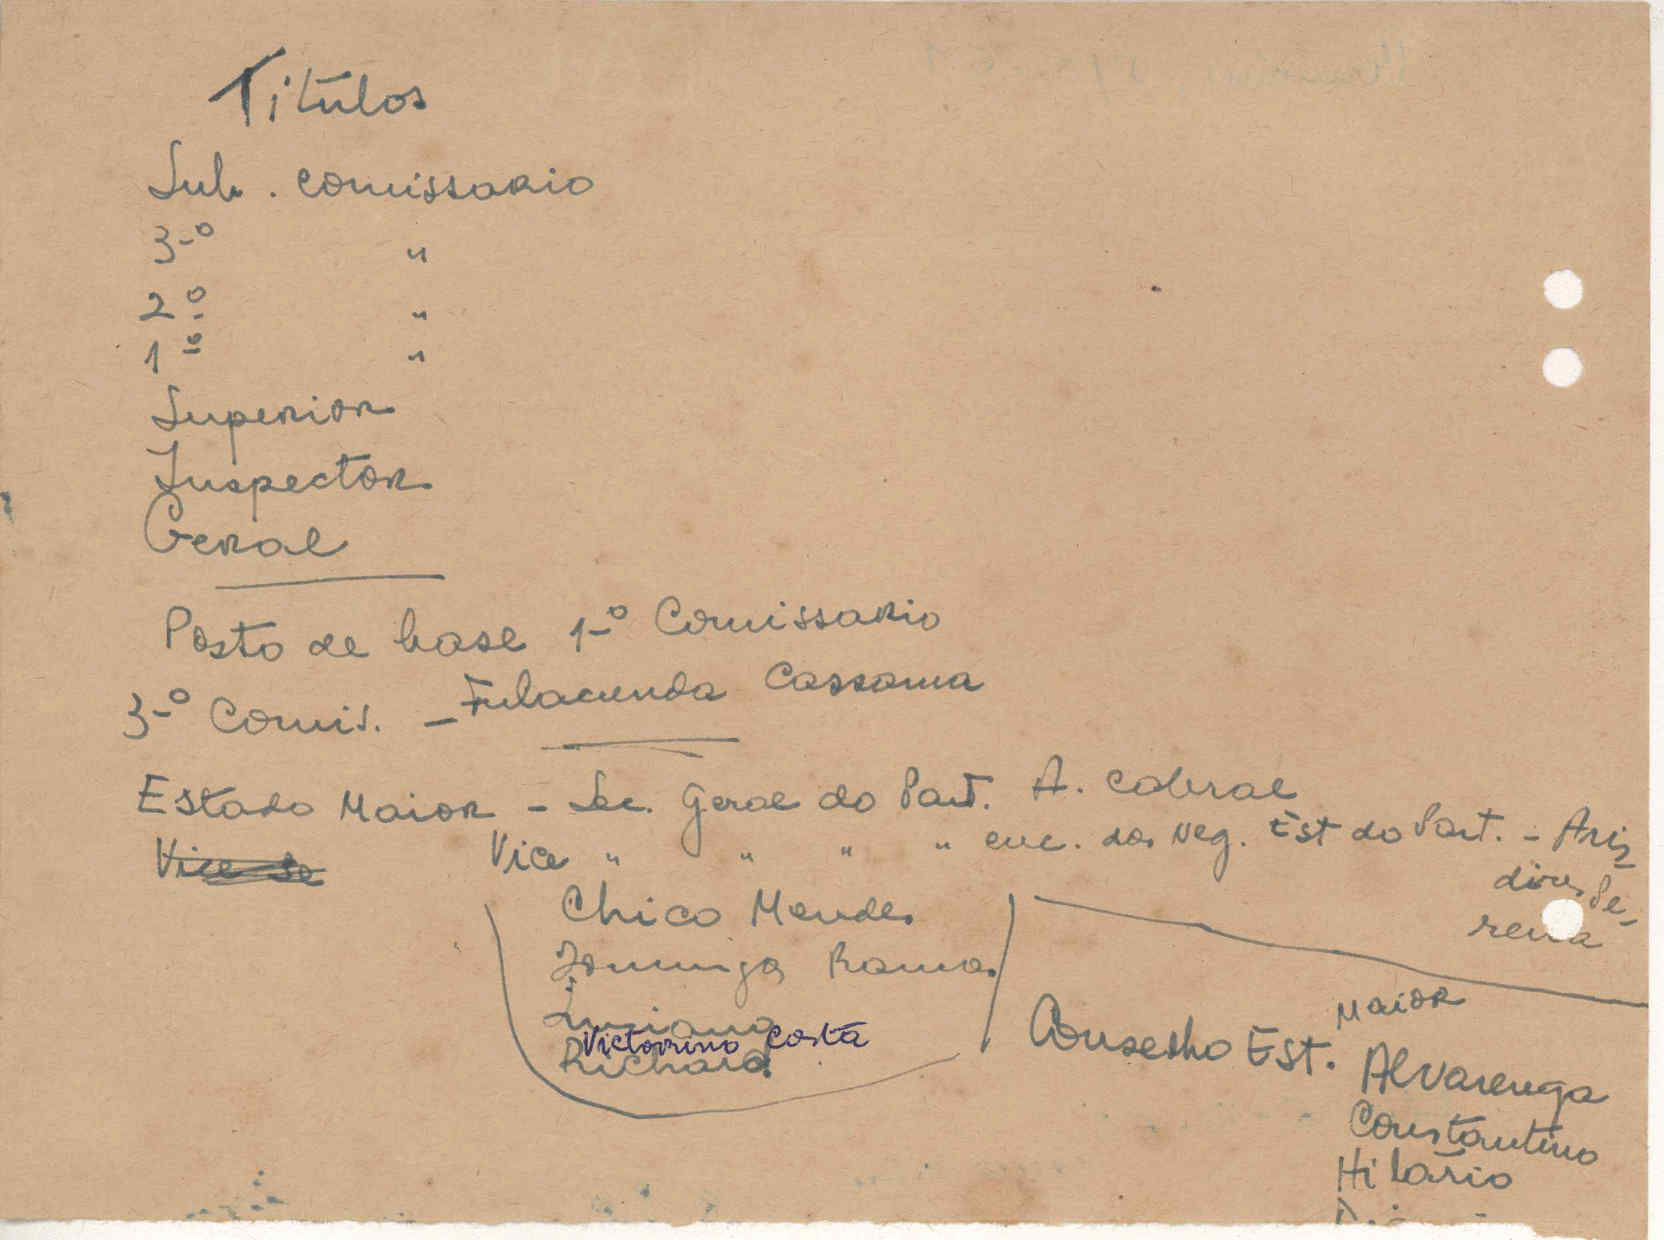 Titúlos
Sub. comissario
3-º "
2º "
1º "
Superior
Inspector
Geral
Posto de base 1-º Comissario
3-º Comis. - Fulacunda Cassama
Estado Maior - Sec. Geral do Part. A. Cabral
Vice " " " " enc. dos Neg. Est do Part. - Aris
Vice Se
tides Pe-
reira
Chico Mendes
Domingos Ramos
Luciano
Victorino Costa
Richard
Conselho Est. Maior
Alvarenga
Constantino
Hilário